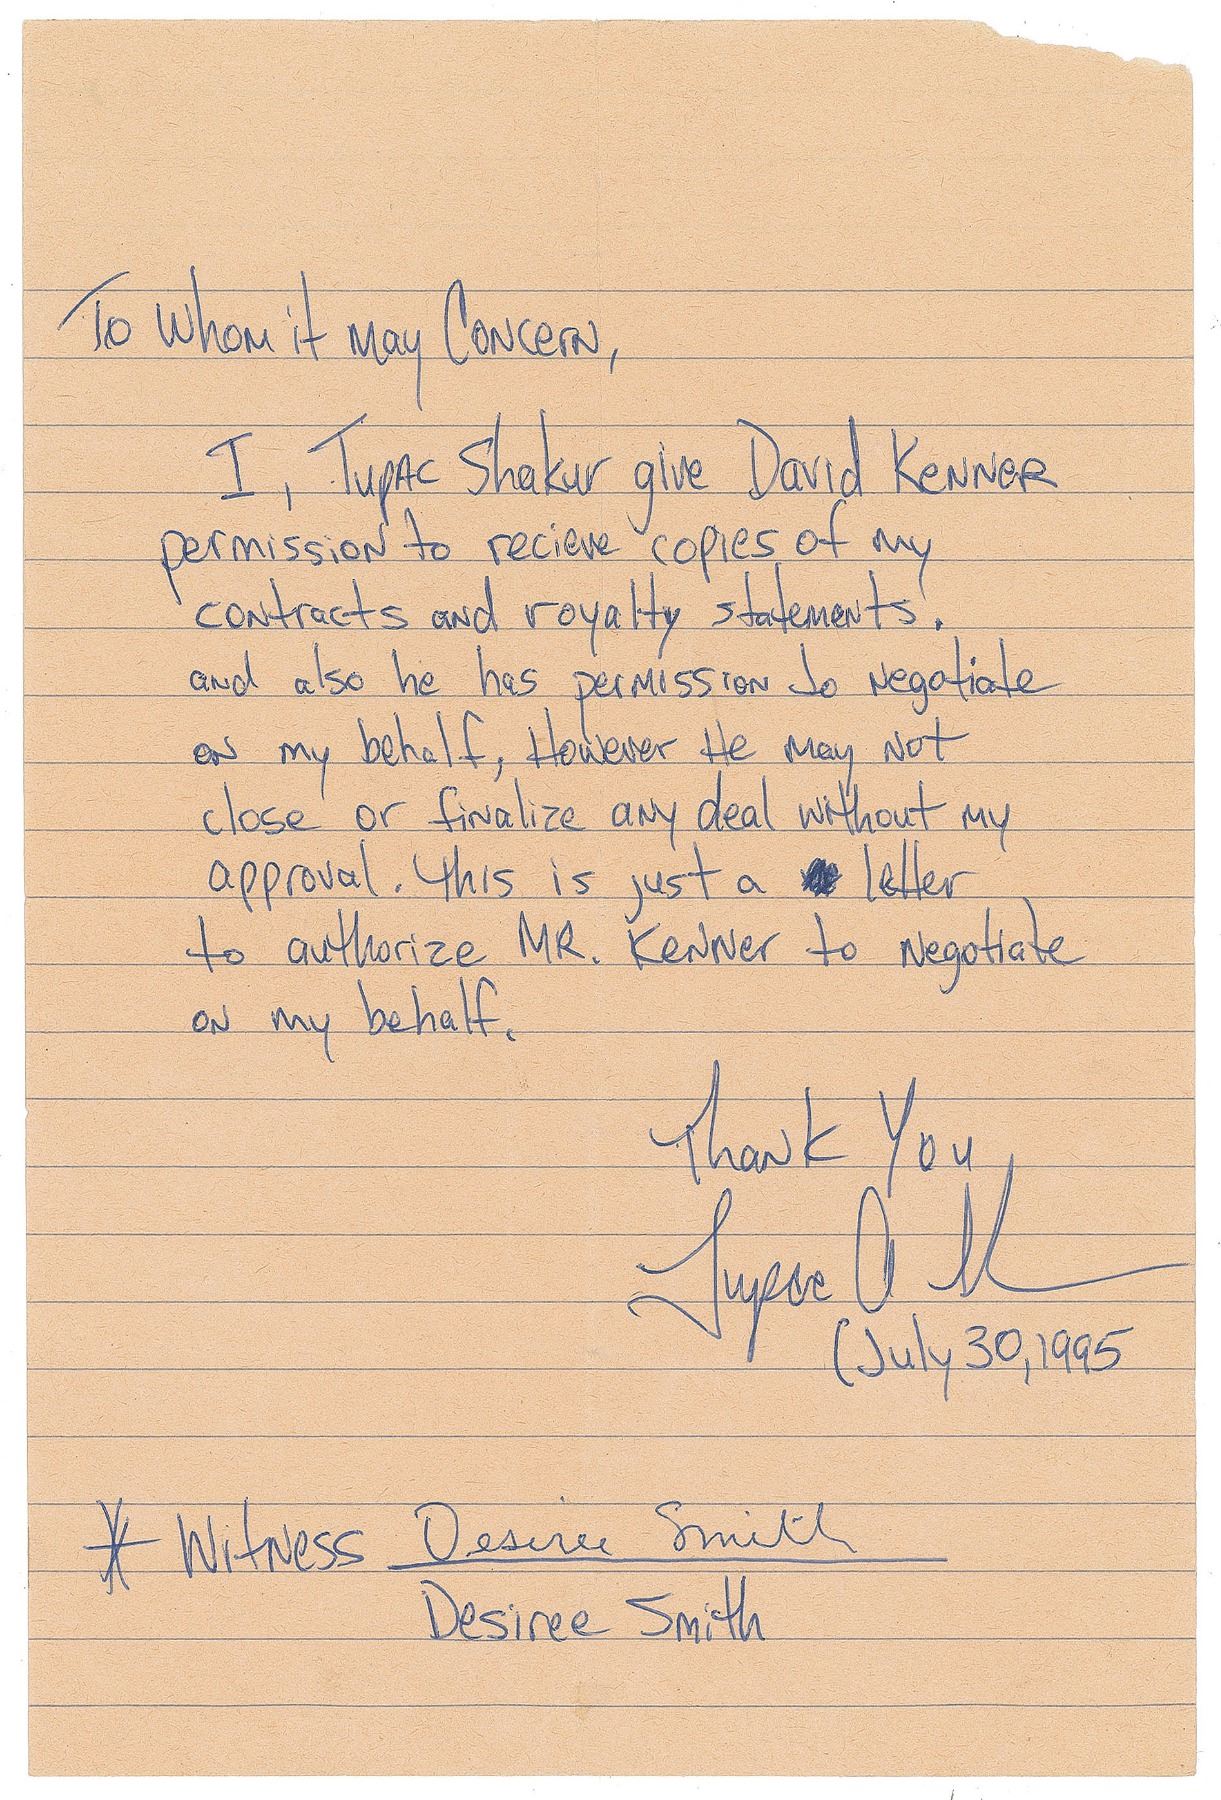 To Whom it May Concern,
I, Tupac Shakur give David Kenner
permission to recieve copies of my
contracts and royalty statements.
and also he has permission to negotiate
on my behalf, However He may not
close or finalize any deal without my
approval. this is just a letter
to authorize MR. Kenner to negotiate
on my behalf.
Thank You
Tupac A
(July 30, 1995
* Witness Desiree Smith
Desiree Smith